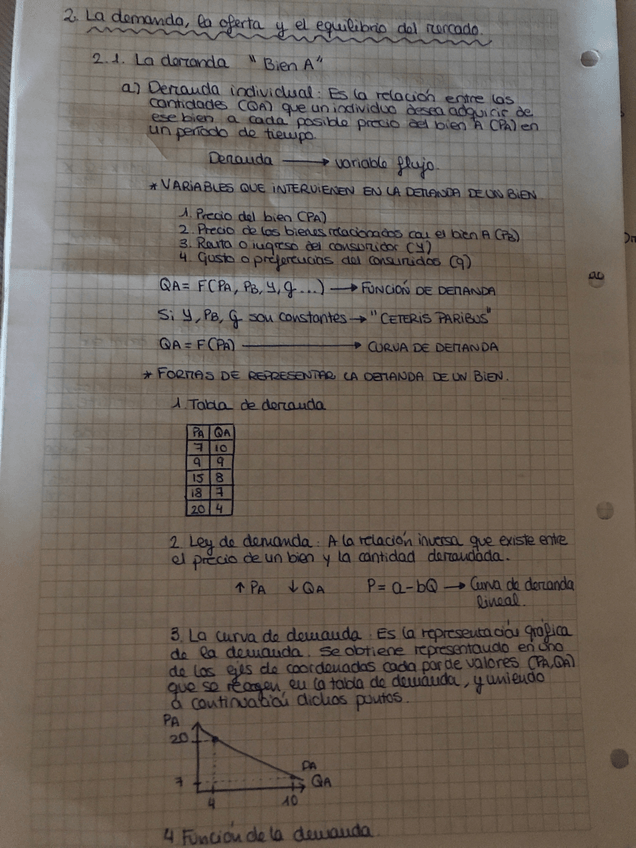 2. La demanda, la oferta y el equilibrio del mercado.
2.1. La demanda "Bien A"
a) Demanda individual: Es la relación entre las
cantidades (QA) que un individuo desea adquirir de
ese bien a cada posible precio del bien A (PA) en
un período de tiempo.
Demanda → variable flujo.
* VARIABLES QUE INTERVIENEN EN LA DEMANDA DE UN BIEN
1. Precio del bien (PA)
2. Precio de los bienes relacionados con el bien A (PB)
3. Renta o ingreso del consumidor (Y)
4. Gusto o preferencias del consumidos (g)
QA = F(PA, PB, Y, g ...) → FUNCIÓN DE DEMANDA
Si Y, PB, g son constantes → "CETERIS PARIBUS"
QA = F(PA) → CURVA DE DEMANDA
* FORMAS DE REPRESENTAR LA DEMANDA DE UN BIEN.
1. Tabla de demanda
PA QA
7 10
9 9
15 8
18 7
20 4
2. Ley de demanda: A la relación inversa que existe entre
el precio de un bien y la cantidad demandada.
↑ PA ↓ QA P = a - bQ → Curva de demanda
lineal.
3. La curva de demanda: Es la representación gráfica
de la demanda. Se obtiene representando en uno
de los ejes de coordenadas cada par de valores (PA, QA)
que se recogen en la tabla de demanda, y uniendo
a continuación dichos puntos.
PA
20
DA
7
QA
4 10
4. Función de la demanda